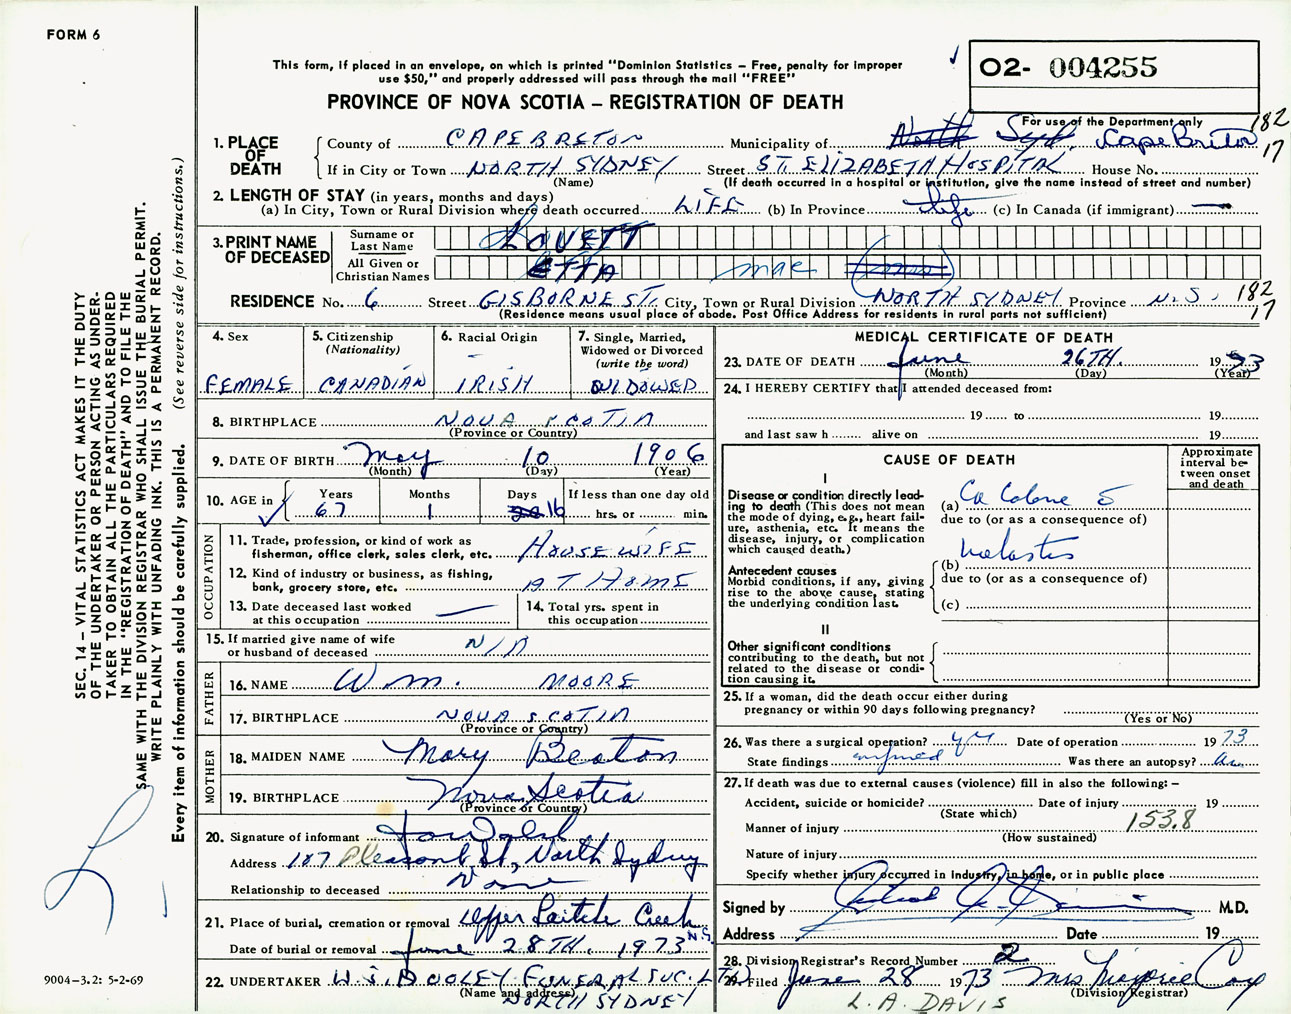 FORM 6
This form, if placed in an envelope, on which is printed "Dominion Statistics – Free, penalty for improper
use $50," and properly addressed will pass through the mail "FREE"
PROVINCE OF NOVA SCOTIA – REGISTRATION OF DEATH
02- 004255
For use of the Department only
182
17
1. PLACE OF DEATH
County of CAPE BRETON Municipality of North Syd. Cape Breton
If in City or Town NORTH SYDNEY Street ST. ELIZABETH HOSPITAL House No.
(Name) (If death occurred in a hospital or institution, give the name instead of street and number)
2. LENGTH OF STAY (in years, months and days)
(a) In City, Town or Rural Division where death occurred LIFE (b) In Province life (c) In Canada (if immigrant) —
3. PRINT NAME OF DECEASED
Surname or Last Name LOVETT
All Given or Christian Names ETTA mae
RESIDENCE No. 6 Street GISBORNE ST. City, Town or Rural Division NORTH SYDNEY Province N.S. 182
17
(Residence means usual place of abode. Post Office Address for residents in rural parts not sufficient)
4. Sex
FEMALE
5. Citizenship
(Nationality)
CANADIAN
6. Racial Origin
IRISH
7. Single, Married,
Widowed or Divorced
(write the word)
WIDOWED
8. BIRTHPLACE NOVA SCOTIA
(Province or Country)
9. DATE OF BIRTH May 10 1906
(Month) (Day) (Year)
10. AGE in Years 67 Months 1 Days 16 If less than one day old
hrs. or min.
OCCUPATION
11. Trade, profession, or kind of work as
fisherman, office clerk, sales clerk, etc. HOUSEWIFE
12. Kind of industry or business, as fishing,
bank, grocery store, etc. AT HOME
13. Date deceased last worked
at this occupation —
14. Total yrs. spent in
this occupation
15. If married give name of wife
or husband of deceased N/A
FATHER
16. NAME Wm. MOORE
17. BIRTHPLACE NOVA SCOTIA
(Province or Country)
MOTHER
18. MAIDEN NAME Mary Beaton
19. BIRTHPLACE Nova Scotia
(Province or Country)
20. Signature of informant
Address 187 Pleasant St., North Sydney
Relationship to deceased None
21. Place of burial, cremation or removal Upper Leitch Creek N.S.
Date of burial or removal June 28TH. 1973
22. UNDERTAKER W.J. DOOLEY FUNERAL SVC. LTD
(Name and address)
NORTH SYDNEY
MEDICAL CERTIFICATE OF DEATH
23. DATE OF DEATH June 26TH. 1973
(Month) (Day) (Year)
24. I HEREBY CERTIFY that I attended deceased from:
19 to 19
and last saw h alive on 19
CAUSE OF DEATH
Approximate
interval be-
tween onset
and death
I
Disease or condition directly lead-
ing to death (This does not mean
the mode of dying, e.g., heart fail-
ure, asthenia, etc. It means the
disease, injury, or complication
which caused death.)
(a) Ca Colon
due to (or as a consequence of)
Antecedent causes
Morbid conditions, if any, giving
rise to the above cause, stating
the underlying condition last.
(b)
due to (or as a consequence of)
(c)
II
Other significant conditions
contributing to the death, but not
related to the disease or condi-
tion causing it.
25. If a woman, did the death occur either during
pregnancy or within 90 days following pregnancy?
(Yes or No)
26. Was there a surgical operation? yes Date of operation 1973
State findings Was there an autopsy?
27. If death was due to external causes (violence) fill in also the following: –
Accident, suicide or homicide? Date of injury 19
(State which)
Manner of injury 153.8
(How sustained)
Nature of injury
Specify whether injury occurred in industry, in home, or in public place
Signed by M.D.
Address Date 19
28. Division Registrar's Record Number 2
29. Filed June 28 1973 Mrs Marjorie Cox
(Division Registrar)
L. A. DAVIS
SEC. 14 – VITAL STATISTICS ACT MAKES IT THE DUTY
OF THE UNDERTAKER OR PERSON ACTING AS UNDER-
TAKER TO OBTAIN ALL THE PARTICULARS REQUIRED
IN THE "REGISTRATION OF DEATH" AND TO FILE THE
SAME WITH THE DIVISION REGISTRAR WHO SHALL ISSUE THE BURIAL PERMIT.
WRITE PLAINLY WITH UNFADING INK. THIS IS A PERMANENT RECORD.
Every item of information should be carefully supplied. (See reverse side for instructions.)
9004–3.2: 5-2-69